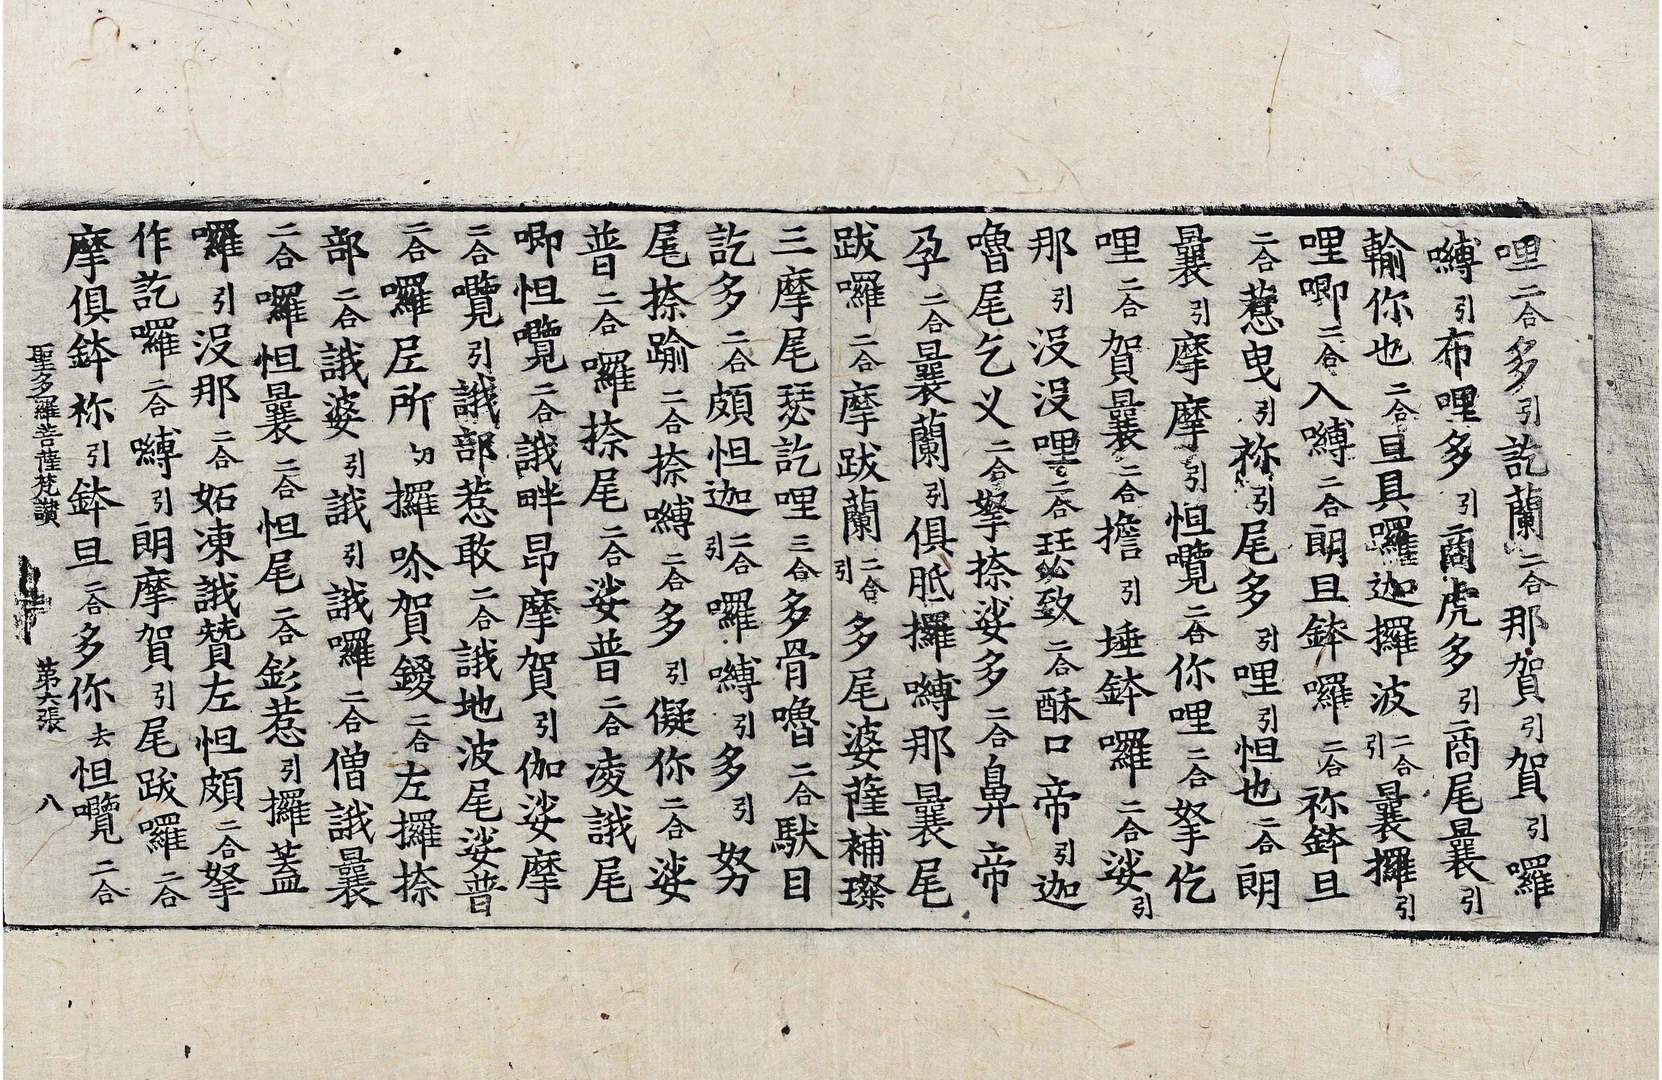 哩二合多引訖蘭二合那賀引賀引囉
嚩引布哩多引商虎多引商尾曩引
輸你也二合且具囉迦攞波二合引曩攞引
哩唧二合入嚩二合朗且鉢囉二合祢鉢且
二合惹曳引祢引尾多引哩引怛也二合朗
曩引摩摩引怛囕二合你哩二合拏仡
哩二合賀曩二合擔引埵鉢囉二合娑引
那引沒沒哩二合致二合酥口帝引迦
嚕尾乞义二合拏捺娑多二合鼻帝
孕二合曩蘭引俱胝攞嚩那曩尾
跋囉二合摩跋蘭二合引多尾婆薩補璨
三摩尾瑟訖哩三合多骨嚕二合馱目
訖多二合頗怛迦二合引囉嚩引多引努
尾捺踰二合捺嚩二合多引儗你二合娑
普二合囉捺尾二合娑普二合凌誐尾
唧怛囕二合誐畔昂摩賀引伽娑摩
二合囕引誐部惹敢二合誐地波尾娑普
二合囉𡰱所切攞唋賀鑁二合左攞捺
部二合誐婆引誐引誐囉二合僧誐曩
二合囉怛曩二合怛尾二合髟惹引攞蓋
囉引沒那二合妬凍誐贊左怛頗二合拏
作訖囉二合嚩引朗摩賀引尾跋囉二合
摩俱鉢祢引鉢旦二合多你去怛囕二合
聖多羅菩薩梵讚 第六張 八